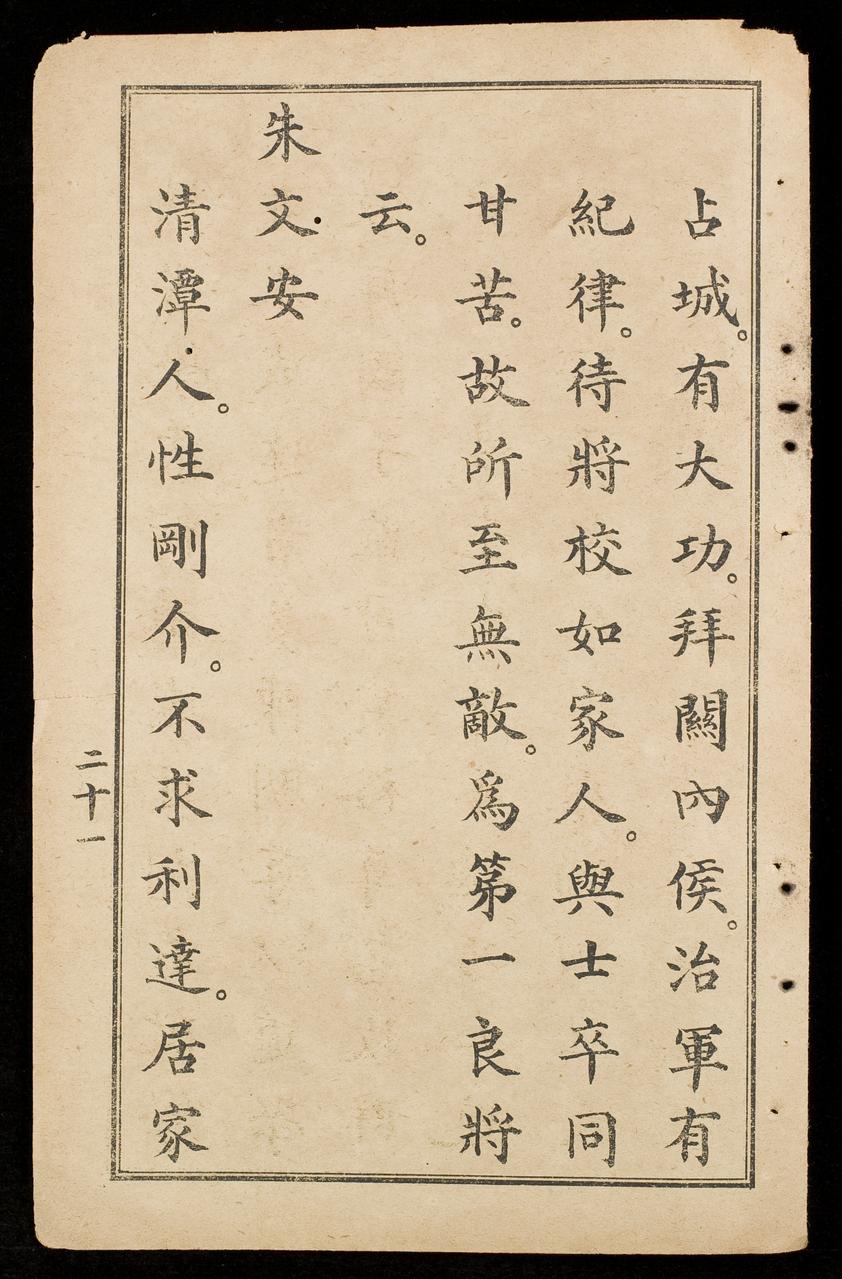 占城。有大功。拜關內侯。治軍有
紀律。待將校如家人。與士卒同
甘苦。故所至無敵。爲第一良將
云。
朱文安
清潭人。性剛介。不求利達。居家
二十一